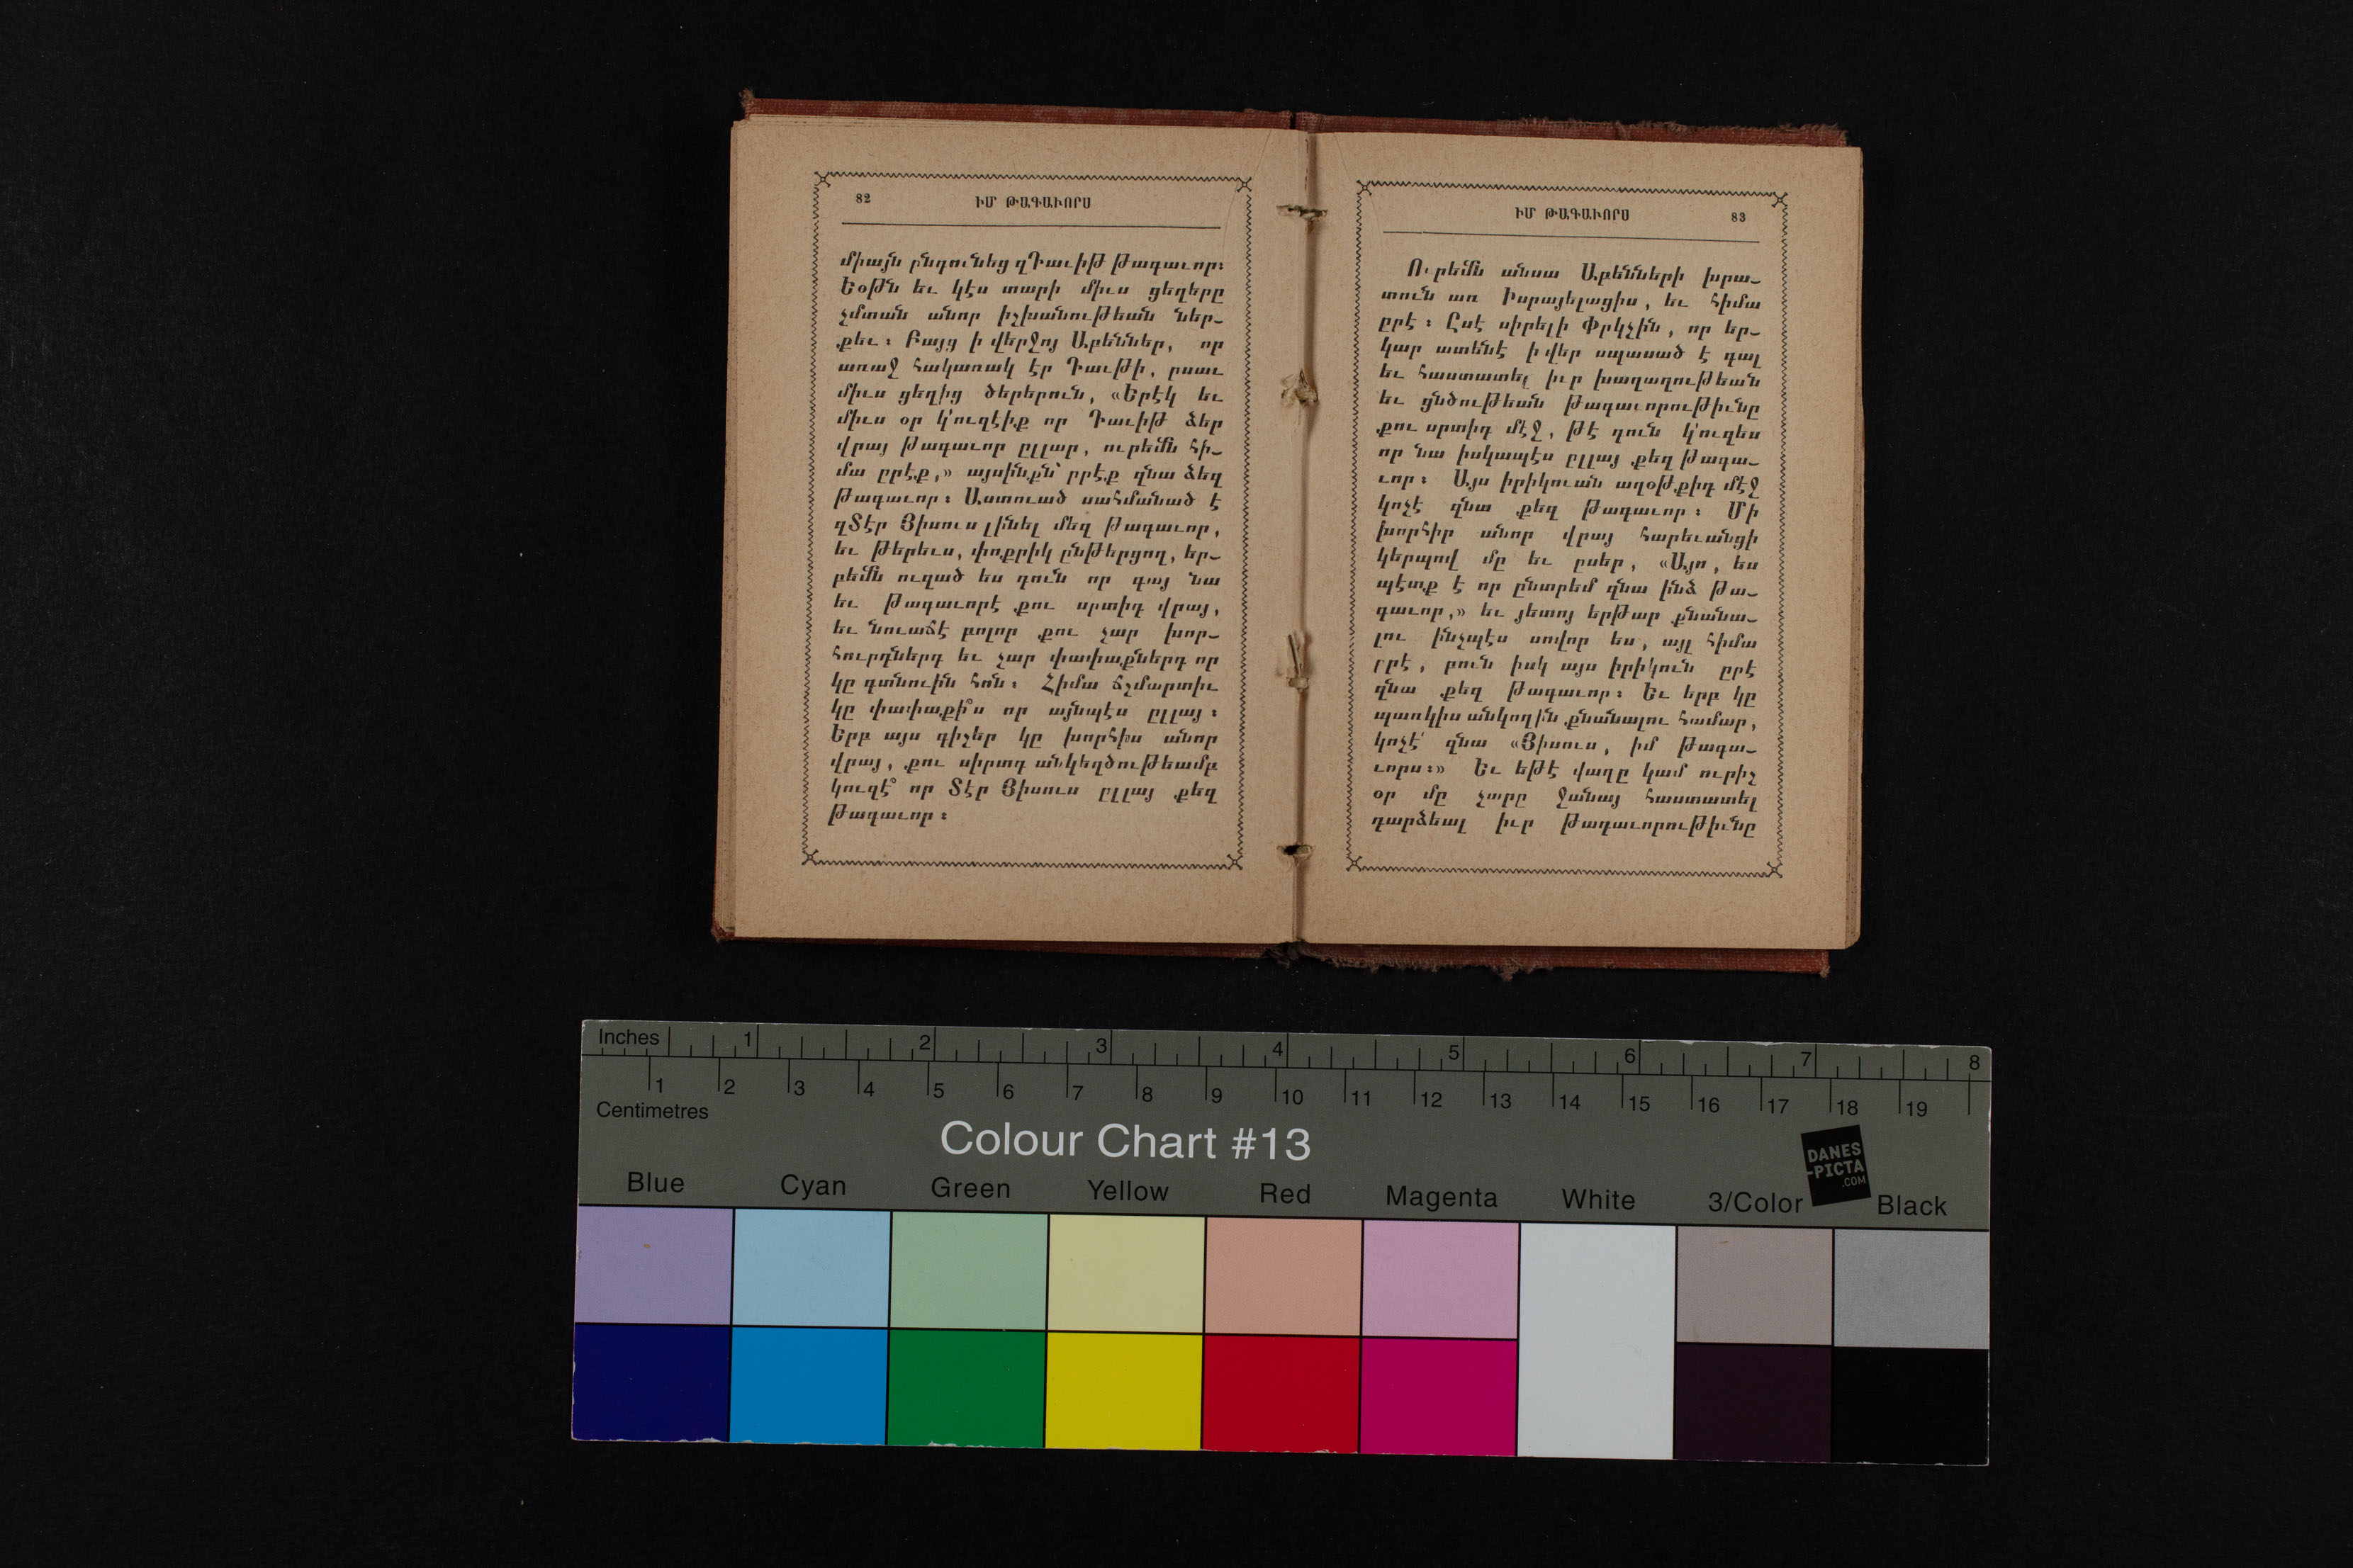 82 ԻՄ ԹԱԳԱՒՈՐՍ
միայն ընդունեց զԴաւիթ թագաւոր։
Եօթն եւ կէս տարի միւս ցեղերը
չմտան անոր իշխանութեան ներ-
քեւ։ Բայց ի վերջոյ Աբեններ, որ
առաջ հակառակ էր Դաւթի, ըսաւ
միւս ցեղից ծերերուն, «Երէկ եւ
միւս օր կ՚ուզէիք որ Դաւիթ ձեր
վրայ թագաւոր ըլլար, ուրեմն հի-
մա ըրէք,» այսինքն՝ ըրէք զնա ձեզ
թագաւոր։ Աստուած սահմանած է
զՏէր Յիսուս լինել մեզ թագաւոր,
եւ թերեւս, փոքրիկ ընթերցող, եր-
բեմն ուզած ես դուն որ գայ նա
եւ թագաւորէ քու սրտիդ վրայ,
եւ նուաճէ բոլոր քու չար խոր-
հուրդներդ եւ չար փափաքներդ որ
կը գտնուին հոն։ Հիմա ճշմարտիւ
կը փափաքի՞ս որ այնպէս ըլլայ։
Երբ այս գիշեր կը խորհիս անոր
վրայ, քու սիրտդ անկեղծութեամբ
կուզէ՞ որ Տէր Յիսուս ըլլայ քեզ
թագաւոր։
ԻՄ ԹԱԳԱՒՈՐՍ 83
Ուրեմն անսա Աբենների խրա-
տուն առ Իսրայելացիս, եւ հիմա
ըրէ։ Ըսէ սիրելի Փրկչին, որ եր-
կար ատենէ ի վեր սպասած է գալ
եւ հաստատել իւր խաղաղութեան
եւ ցնծութեան թագաւորութիւնը
քու սրտիդ մէջ, թէ դուն կ՚ուզես
որ նա իսկապէս ըլլայ քեզ թագա-
ւոր։ Այս իրիկուան աղօթքիդ մէջ
կոչէ զնա քեզ թագաւոր։ Մի
խորհիր անոր վրայ հարեւանցի
կերպով մը եւ ըսեր, «Այո, ես
պէտք է որ ընտրեմ զնա ինձ թա-
գաւոր,» եւ յետոյ երթար քնանա-
լու ինչպէս սովոր ես, այլ հիմա
ըրէ, բուն իսկ այս իրիկուն ըրէ
զնա քեզ թագաւոր։ Եւ երբ կը
պառկիս անկողին քնանալու համար,
կոչէ՛ զնա «Յիսուս, իմ թագա-
ւորս։» Եւ եթէ վաղը կամ ուրիշ
օր մը չարը ջանայ հաստատել
դարձեալ իւր թագաւորութիւնը
Inches 1 2 3 4 5 6 7 8
1 2 3 4 5 6 7 8 9 10 11 12 13 14 15 16 17 18 19
Centimetres
Colour Chart #13
DANES
-PICTA
.COM
Blue Cyan Green Yellow Red Magenta White 3/Color Black